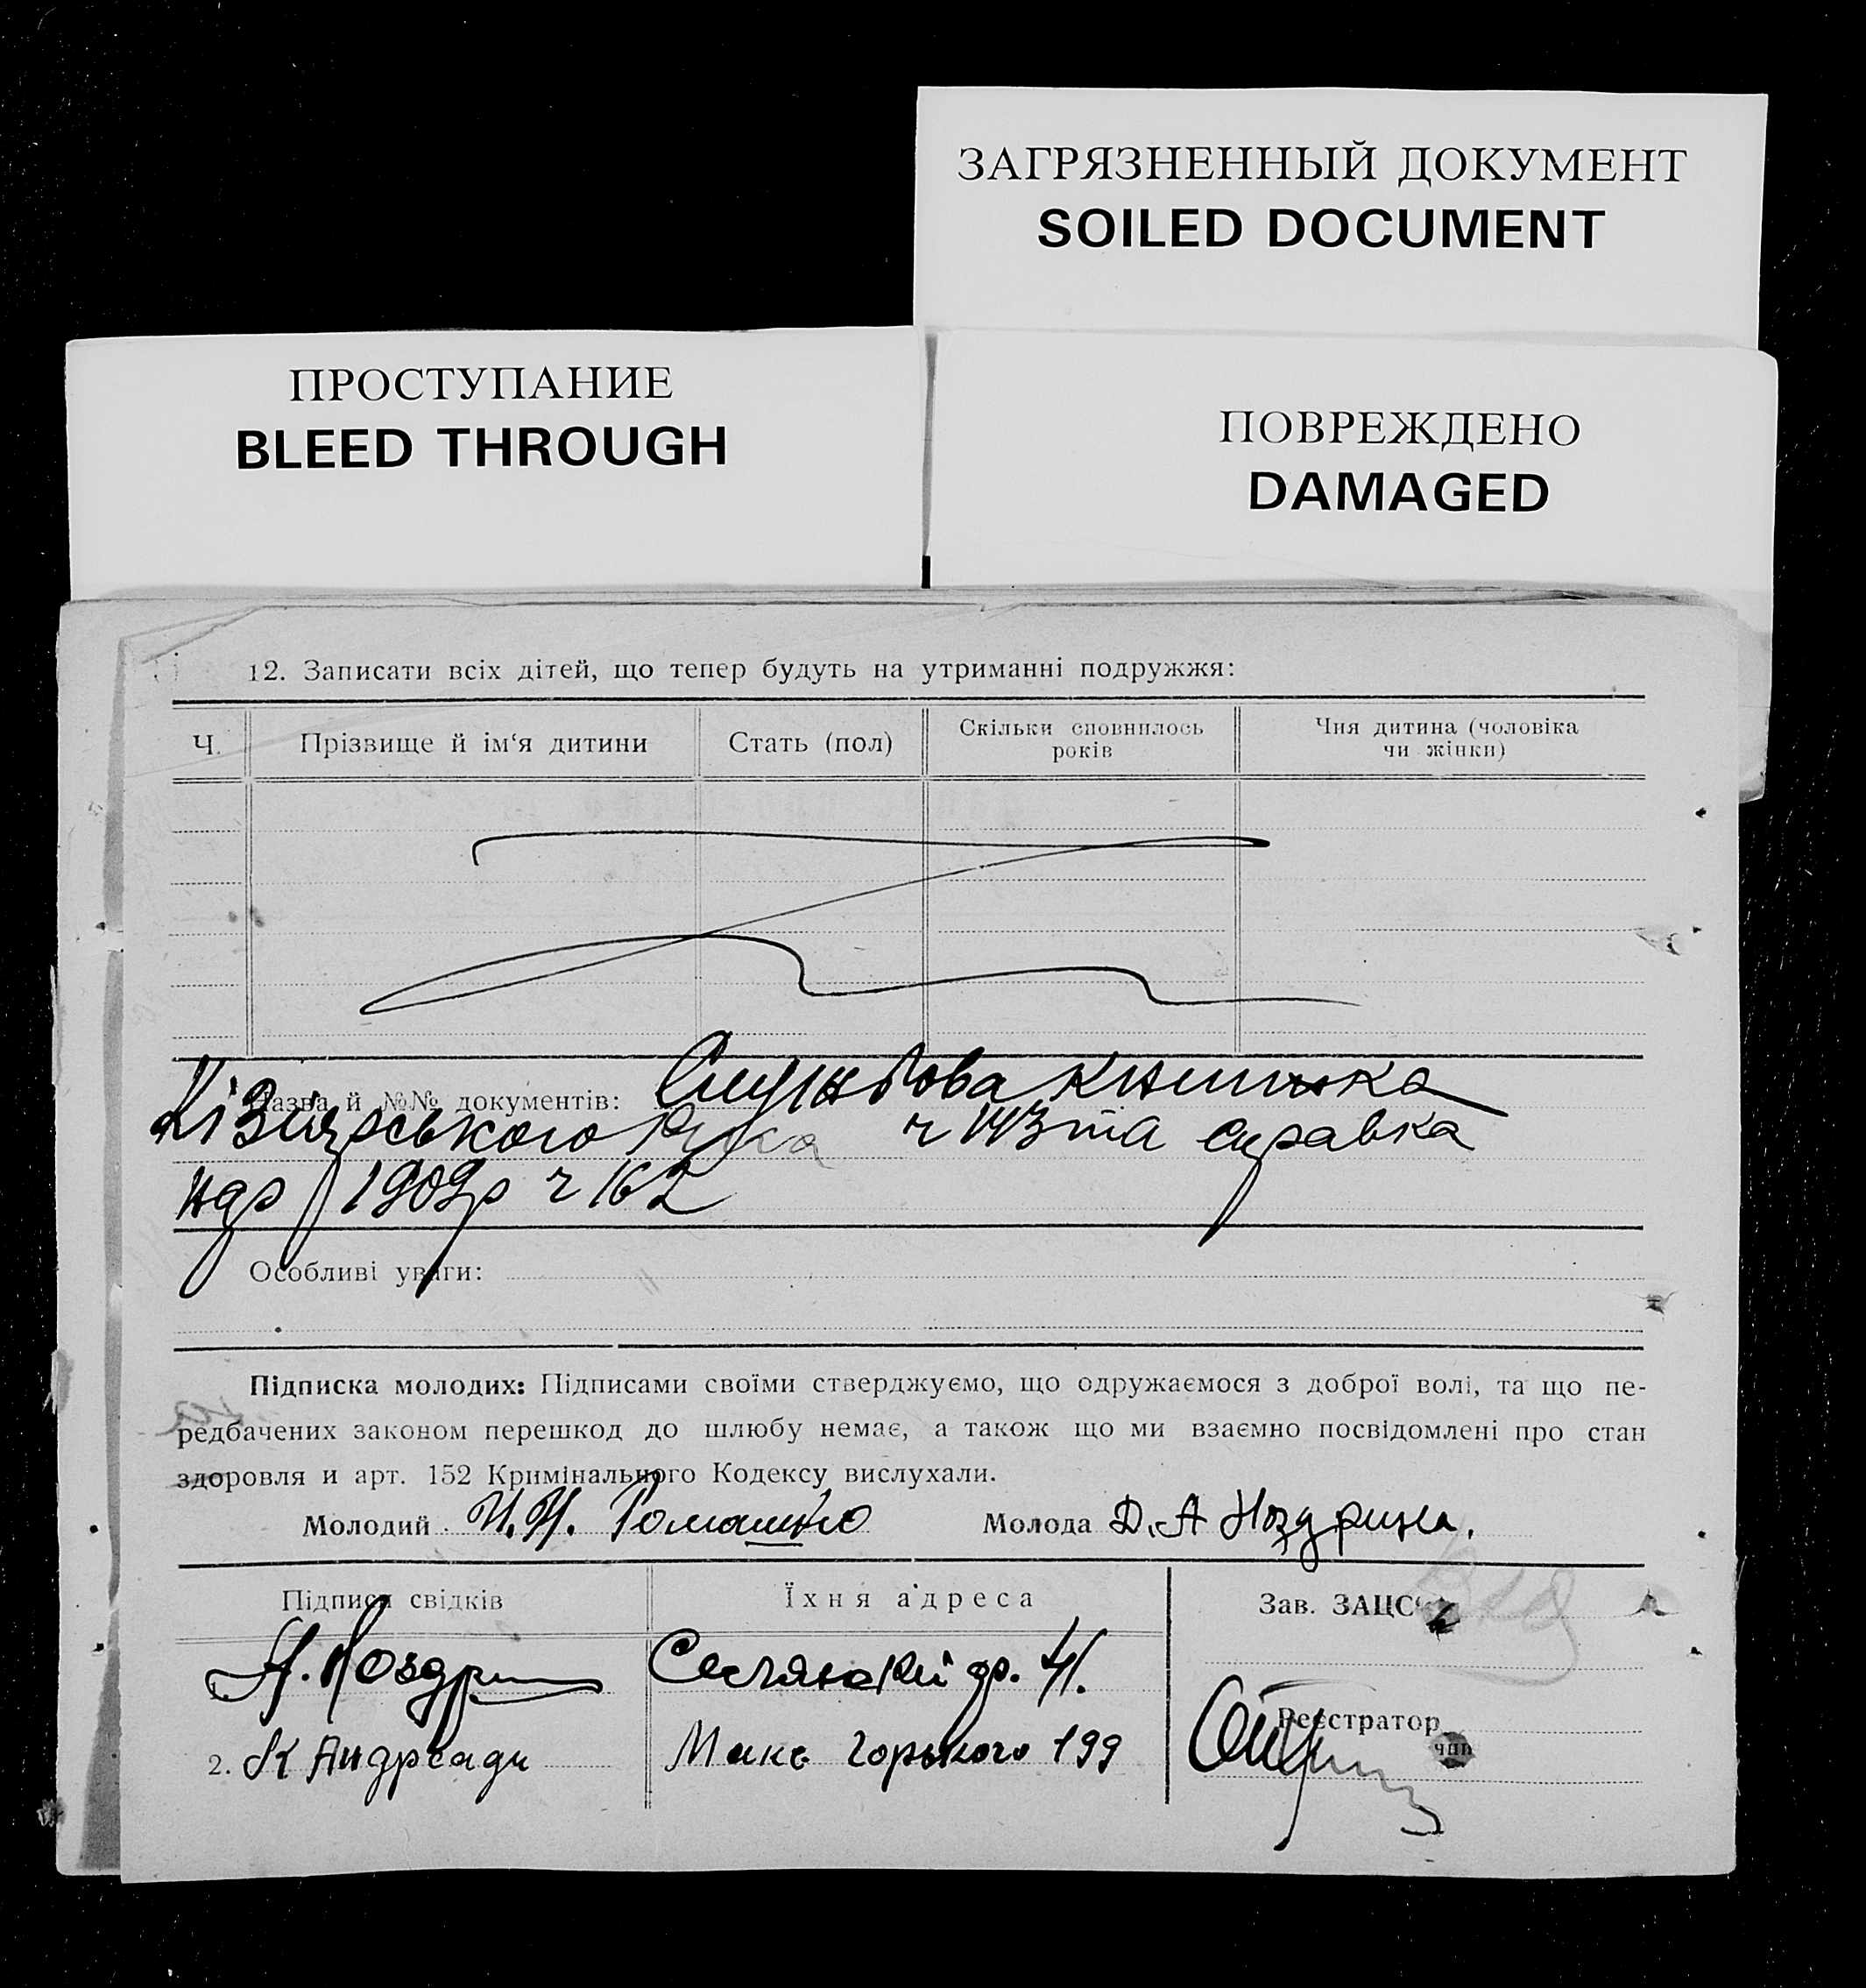 ЗАГРЯЗНЕННЫЙ ДОКУМЕНТ
SOILED DOCUMENT
ПРОСТУПАНИЕ
BLEED THROUGH
ПОВРЕЖДЕНО
DAMAGED
12. Записати всіх дітей, що тепер будуть на утриманні подружжя:
Ч.
Прізвище й ім'я дитини
Стать (пол)
Скільки сповнилось
років
Чия дитина (чоловіка
чи жінки)
Назва й №№ документів: книжка
ч 143 та справка
1909р ч 162
Особливі уваги:
Підписка молодих: Підписами своїми стверджуємо, що одружаємося з доброї волі, та що пе-
редбачених законом перешкод до шлюбу немає, а також що ми взаємно посвідомлені про стан
здоровля и арт. 152 Кримінального Кодексу вислухали.
Молодий И.И. Ромашко Молода Д. А Ноздрина.
Підписи свідків
Їхня адреса
Зав. ЗАЦС'
А. Ноздрин
2. К Андреади
Макс Горького 199
Реєстратор